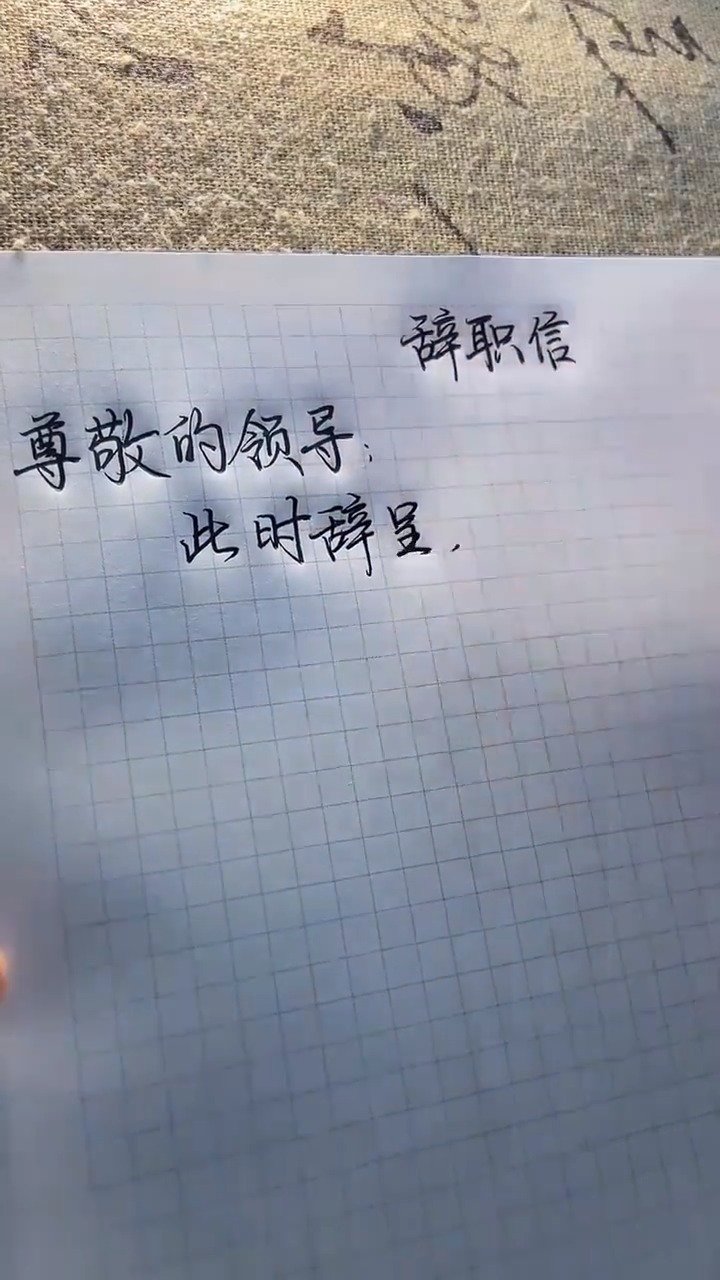 辞职信
尊敬的领导：
此时辞呈，